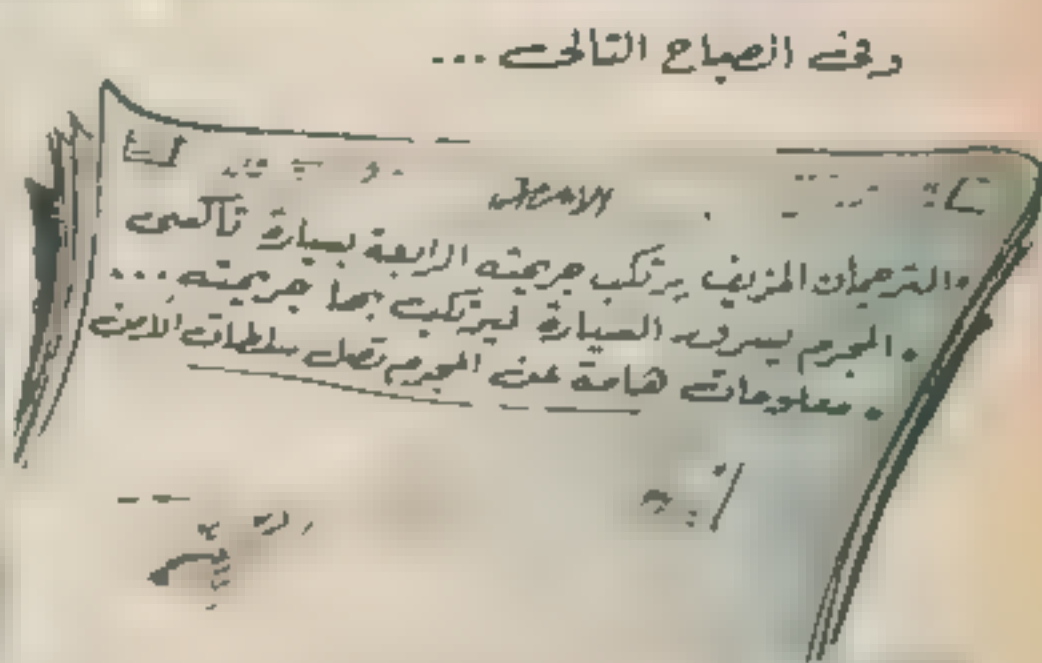 وفى الصباح التالى ...
. الترجمان المزيف يرتكب جريمته الرابعة بسيارة تاكسى
. المجرم يسرق السيارة ليرتكب بها جريمته ...
. معلومات هامة عن المجرم تصل سلطات الأمن